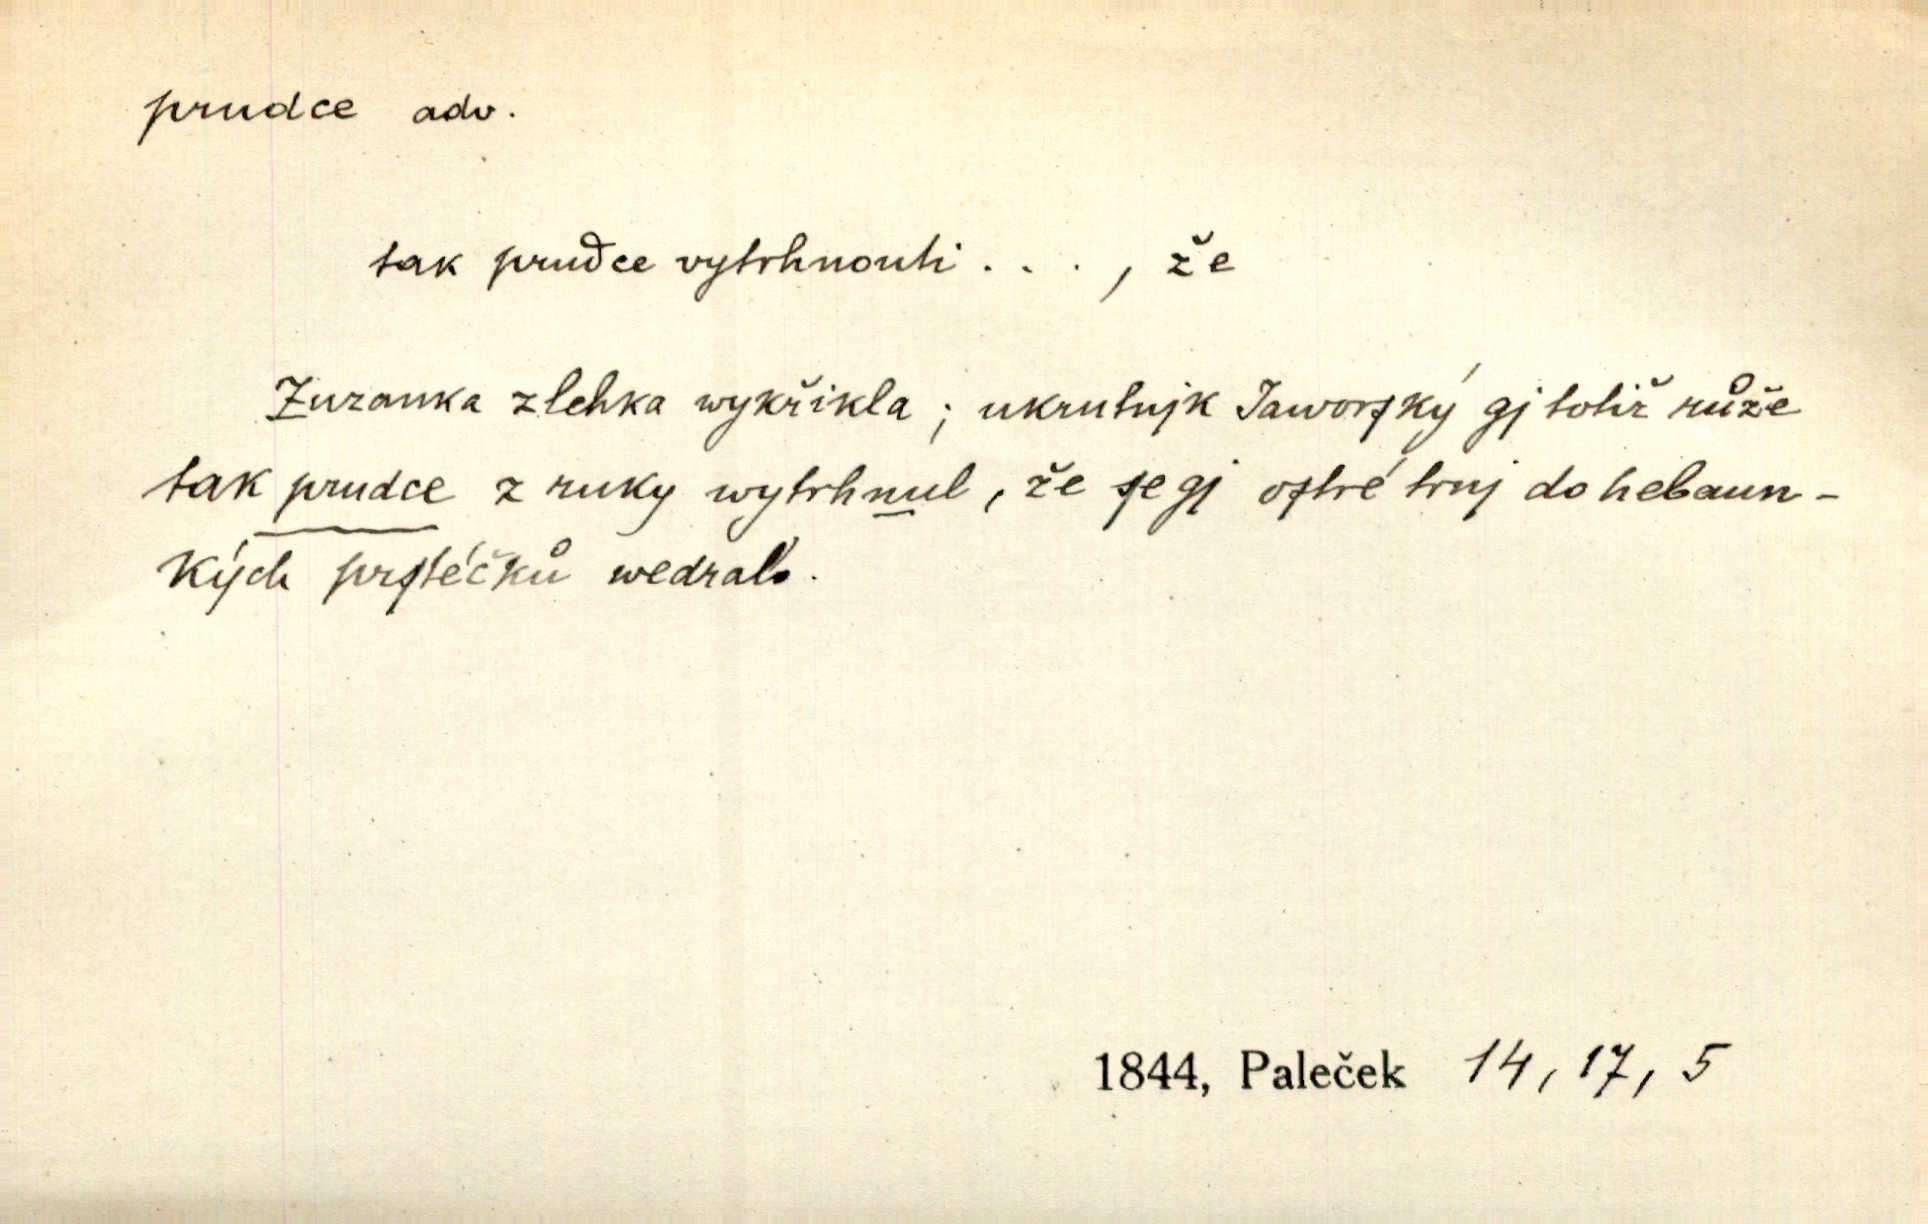 prudce adv.
tak pruďce vytrhnouti . . . , že
Zuzanka zlehka wykřikla ; ukrutnjk Jaworſký gj totiž růže
tak prudce z ruky wytrhnul , že ſe gj oſtré trnj do hebaun-
kých prſtéčků wedralo .
1844, Paleček 14, 17, 5